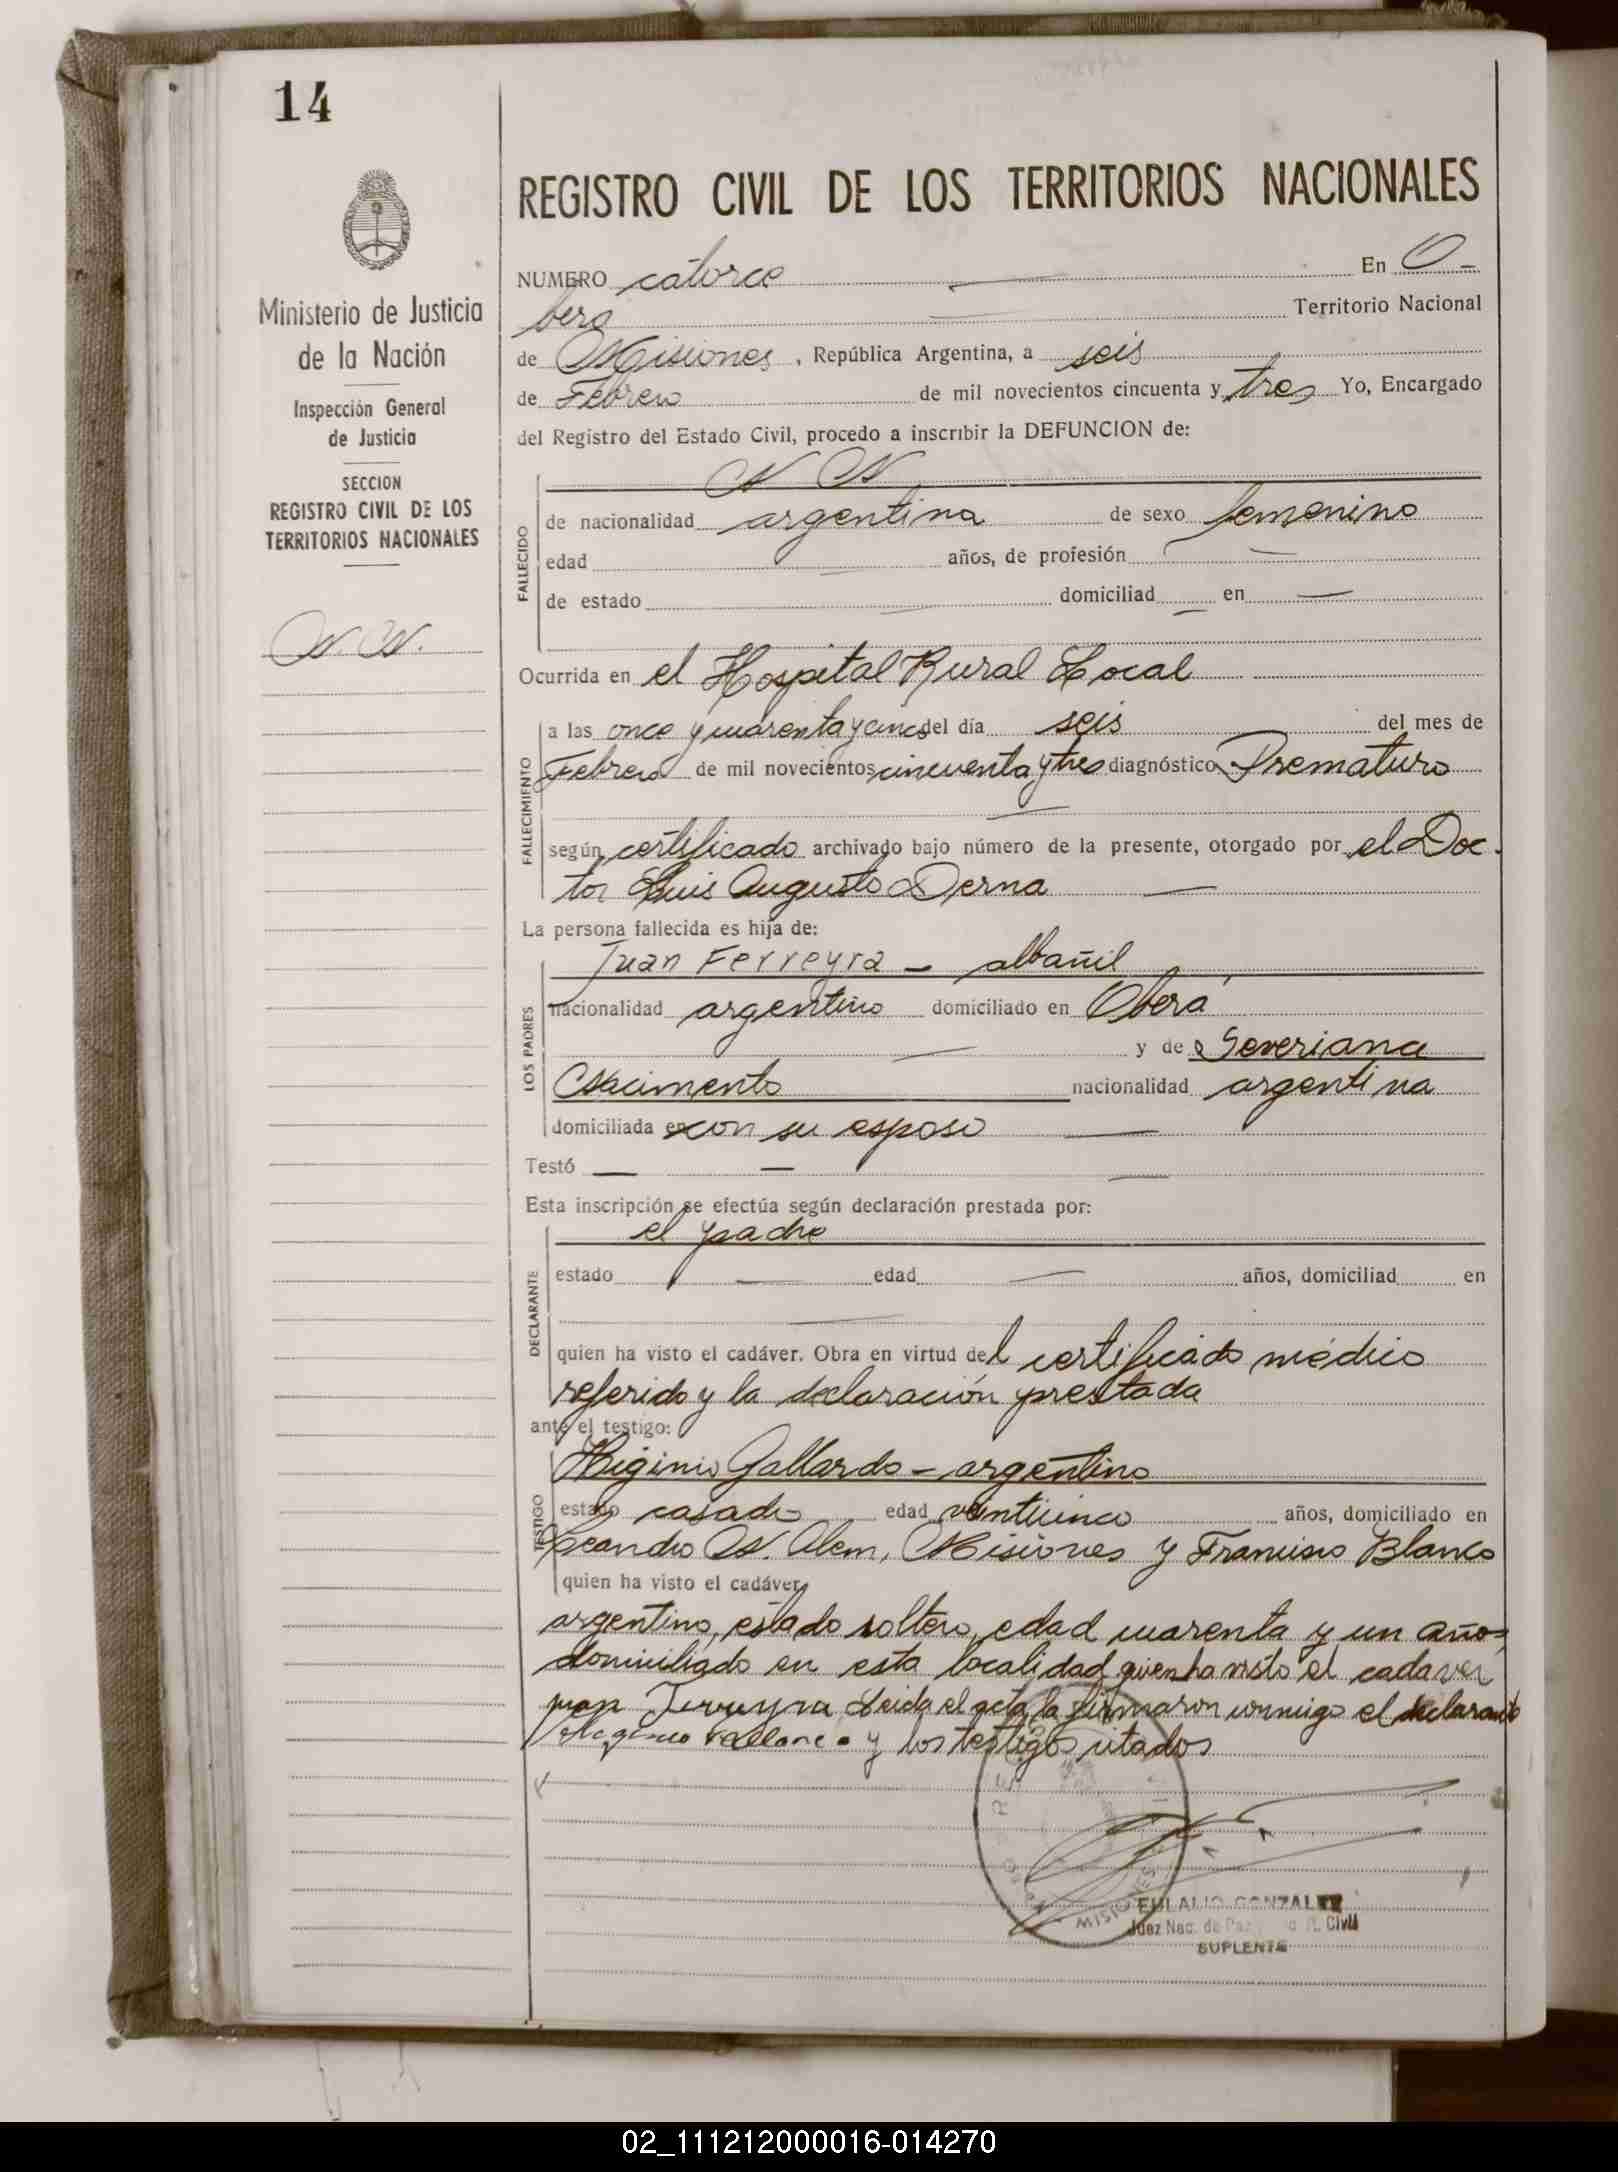 14
REGISTRO CIVIL DE LOS TERRITORIOS NACIONALES
Ministerio de Justicia
de la Nación
Inspección General
de Justicia
SECCION
REGISTRO CIVIL DE LOS
TERRITORIOS NACIONALES
N. N.
NUMERO catorce En O-
bera Territorio Nacional
de Misiones, República Argentina, a seis
de Febrero de mil novecientos cincuenta y tres Yo, Encargado
del Registro del Estado Civil, procedo a inscribir la DEFUNCION de:
N N
FALLECIDO
de nacionalidad argentina de sexo femenino
edad años, de profesión
de estado domiciliad en
Ocurrida en el Hospital Rural Local
FALLECIMIENTO
a las once y cuarenta y cinco del día seis del mes de
Febrero de mil novecientos cincuenta y tres diagnóstico Prematuro
según certificado archivado bajo número de la presente, otorgado por el Doc-
tor Luis Augusto Derna
La persona fallecida es hija de:
LOS PADRES
Juan Ferreyra - albañil
nacionalidad argentino domiciliado en Oberá
y de Severiana
Nacimento nacionalidad argentina
domiciliada en con su esposo
Testó
Esta inscripción se efectúa según declaración prestada por:
DECLARANTE
el padre
estado edad años, domiciliad en
quien ha visto el cadáver. Obra en virtud del certificado médico
referido y la declaración prestada
ante el testigo:
TESTIGO
Higinio Gallardo - argentino
estado casado edad veinticinco años, domiciliado en
Leandro N. Alem, Misiones y Francisco Blanco
quien ha visto el cadáver,
argentino, estado soltero, edad cuarenta y un años,
domiciliado en esta localidad quien ha visto el cadaver
juan Ferreyra Leida el acta la firmaron conmigo el declarante
y los testigos citados
MISIONES
EULALIO GONZALEZ
Juez Nac. de Paz R. Civil
SUPLENTE
02_111212000016-014270